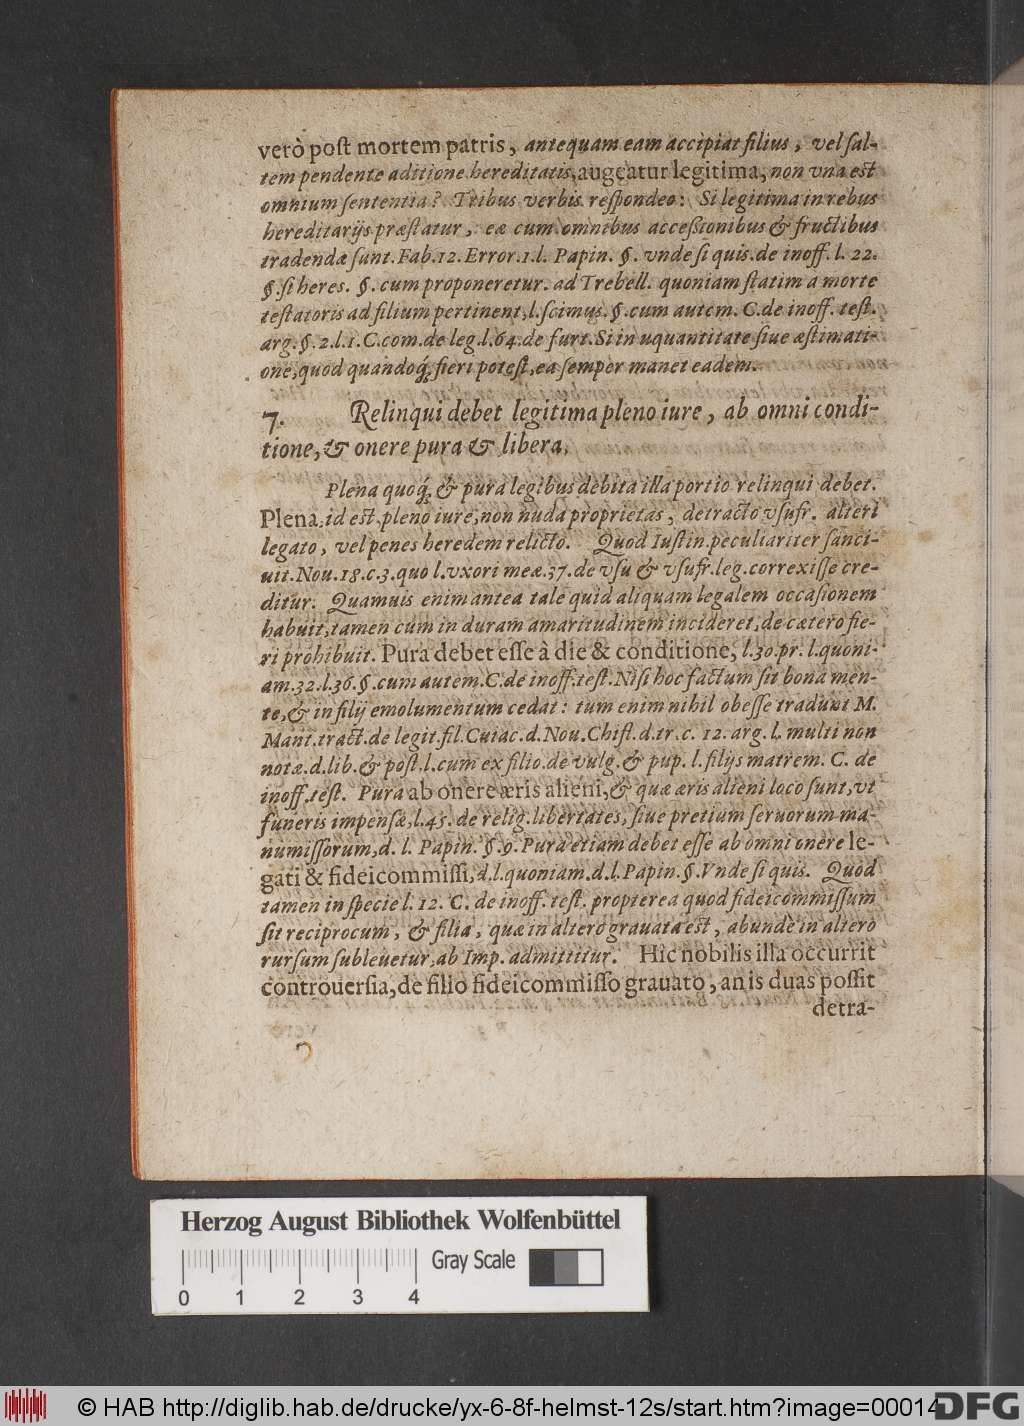 verò poſt mortem patris, antequam eam accipiat filius, vel ſal-
tem pendente aditione hereditatis, augeatur legitima, non vna eſt
omnium ſententia? Tribus verbis reſpondeo: Si legitima in rebus
hereditarijs præſtatur, eæ cum omnibus acceßionibus & fructibus
tradendæ ſunt. Fab. 12. Error. 1. l. Papin. §. vnde ſi quis. de inoff. l. 22.
§. ſi heres. §. cum proponeretur. ad Trebell. quoniam ſtatim a morte
teſtatoris ad filium pertinent, l. ſcimus. §. cum autem. C. de inoff. teſt.
arg. §. 2. l. 1. C. com. de leg. l. 64. de furt. Si in uquantitate ſiue æſtimati-
one, quod quandoq́; fieri poteſt, ea ſemper manet eadem.
7. Relinqui debet legitima pleno iure, ab omni condi-
tione, & onere pura & libera.
Plena quoq́; & pura legibus debita illa portio relinqui debet.
Plena, id eſt, pleno iure, non nuda proprietas, detracto vſufr. alteri
legato, vel penes heredem relicto. Quod Iuſtin. peculiariter ſanci-
uit. Nou. 18. c. 3. quo l. vxori meæ. 37. de vſu & vſufr. leg. correxiſſe cre-
ditur. Quamuis enim antea tale quid aliquam legalem occaſionem
habuit, tamen cum in duram amaritudinem incideret, de cætero fie-
ri prohibuit. Pura debet eſſe à die & conditione, l. 30. pr. l. quoni-
am. 32. l. 36. §. cum autem. C. de inoff. teſt. Niſi hoc factum ſit bona men-
te, & in filij emolumentum cedat: tum enim nihil obeſſe tradunt M.
Mant. tract. de legit. fil. Cuiac. d. Nou. Chiſl. d. tr. c. 12. arg. l. multi non
notæ. d. lib. & poſt. l. cum ex filio. de vulg. & pup. l. filijs matrem. C. de
inoff. teſt. Pura ab onere æris alieni, & quæ æris alieni loco ſunt, vt
funeris impenſæ, l. 45. de relig. libertates, ſiue pretium ſeruorum ma-
numiſſorum, d. l. Papin. §. 9. Pura etiam debet eſſe ab omni onere le-
gati & fideicommiſſi, d. l. quoniam. d. l. Papin. §. Vnde ſi quis. Quod
tamen in ſpecie l. 12. C. de inoff. teſt. propterea quod fideicommiſſum
ſit reciprocum, & filia, quæ in altero grauata eſt, abundè in altero
rurſum ſubleuetur, ab Imp. admittitur. Hic nobilis illa occurrit
controuerſia, de filio fideicommiſſo grauato, an is duas poſſit
detra-
Herzog August Bibliothek Wolfenbüttel
Gray Scale
0 1 2 3 4
© HAB http://diglib.hab.de/drucke/yx-6-8f-helmst-12s/start.htm?image=00014
DFG